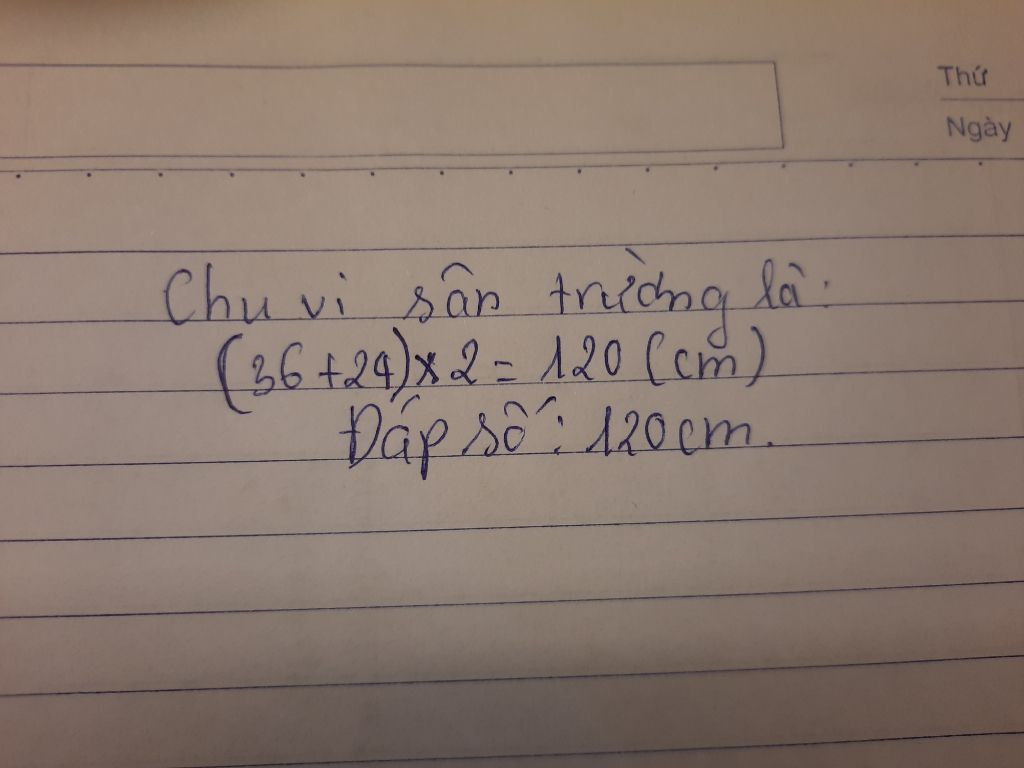 Thứ
Ngày
Chu vi sân trường là:
(36+24)×2=120 (cm)
Đáp số: 120cm.